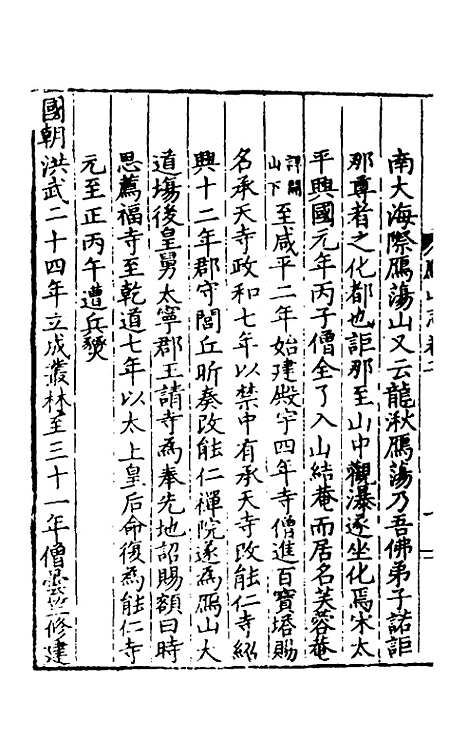 南大海際鴈蕩山又云龍湫鴈蕩乃吾佛弟子諾詎
那尊者之化都也詎那至山中觀瀑遂坐化焉宋太
平興國元年丙子僧全了入山結菴而居名芙蓉菴
詳開山下至咸平二年始建殿宇四年寺僧進百寶塔賜
名承天寺政和七年以禁中有承天寺改能仁寺紹
興十二年郡守閭丘昕奏改能仁禪院遂為鴈山大
道塲後皇舅太寧郡王請寺為奉先地詔賜額曰時
思薦福寺至乾道七年以太上皇后命復為能仁寺
元至正丙午遭兵燹
國朝洪武二十四年立成叢林至三十一年僧曇 修建